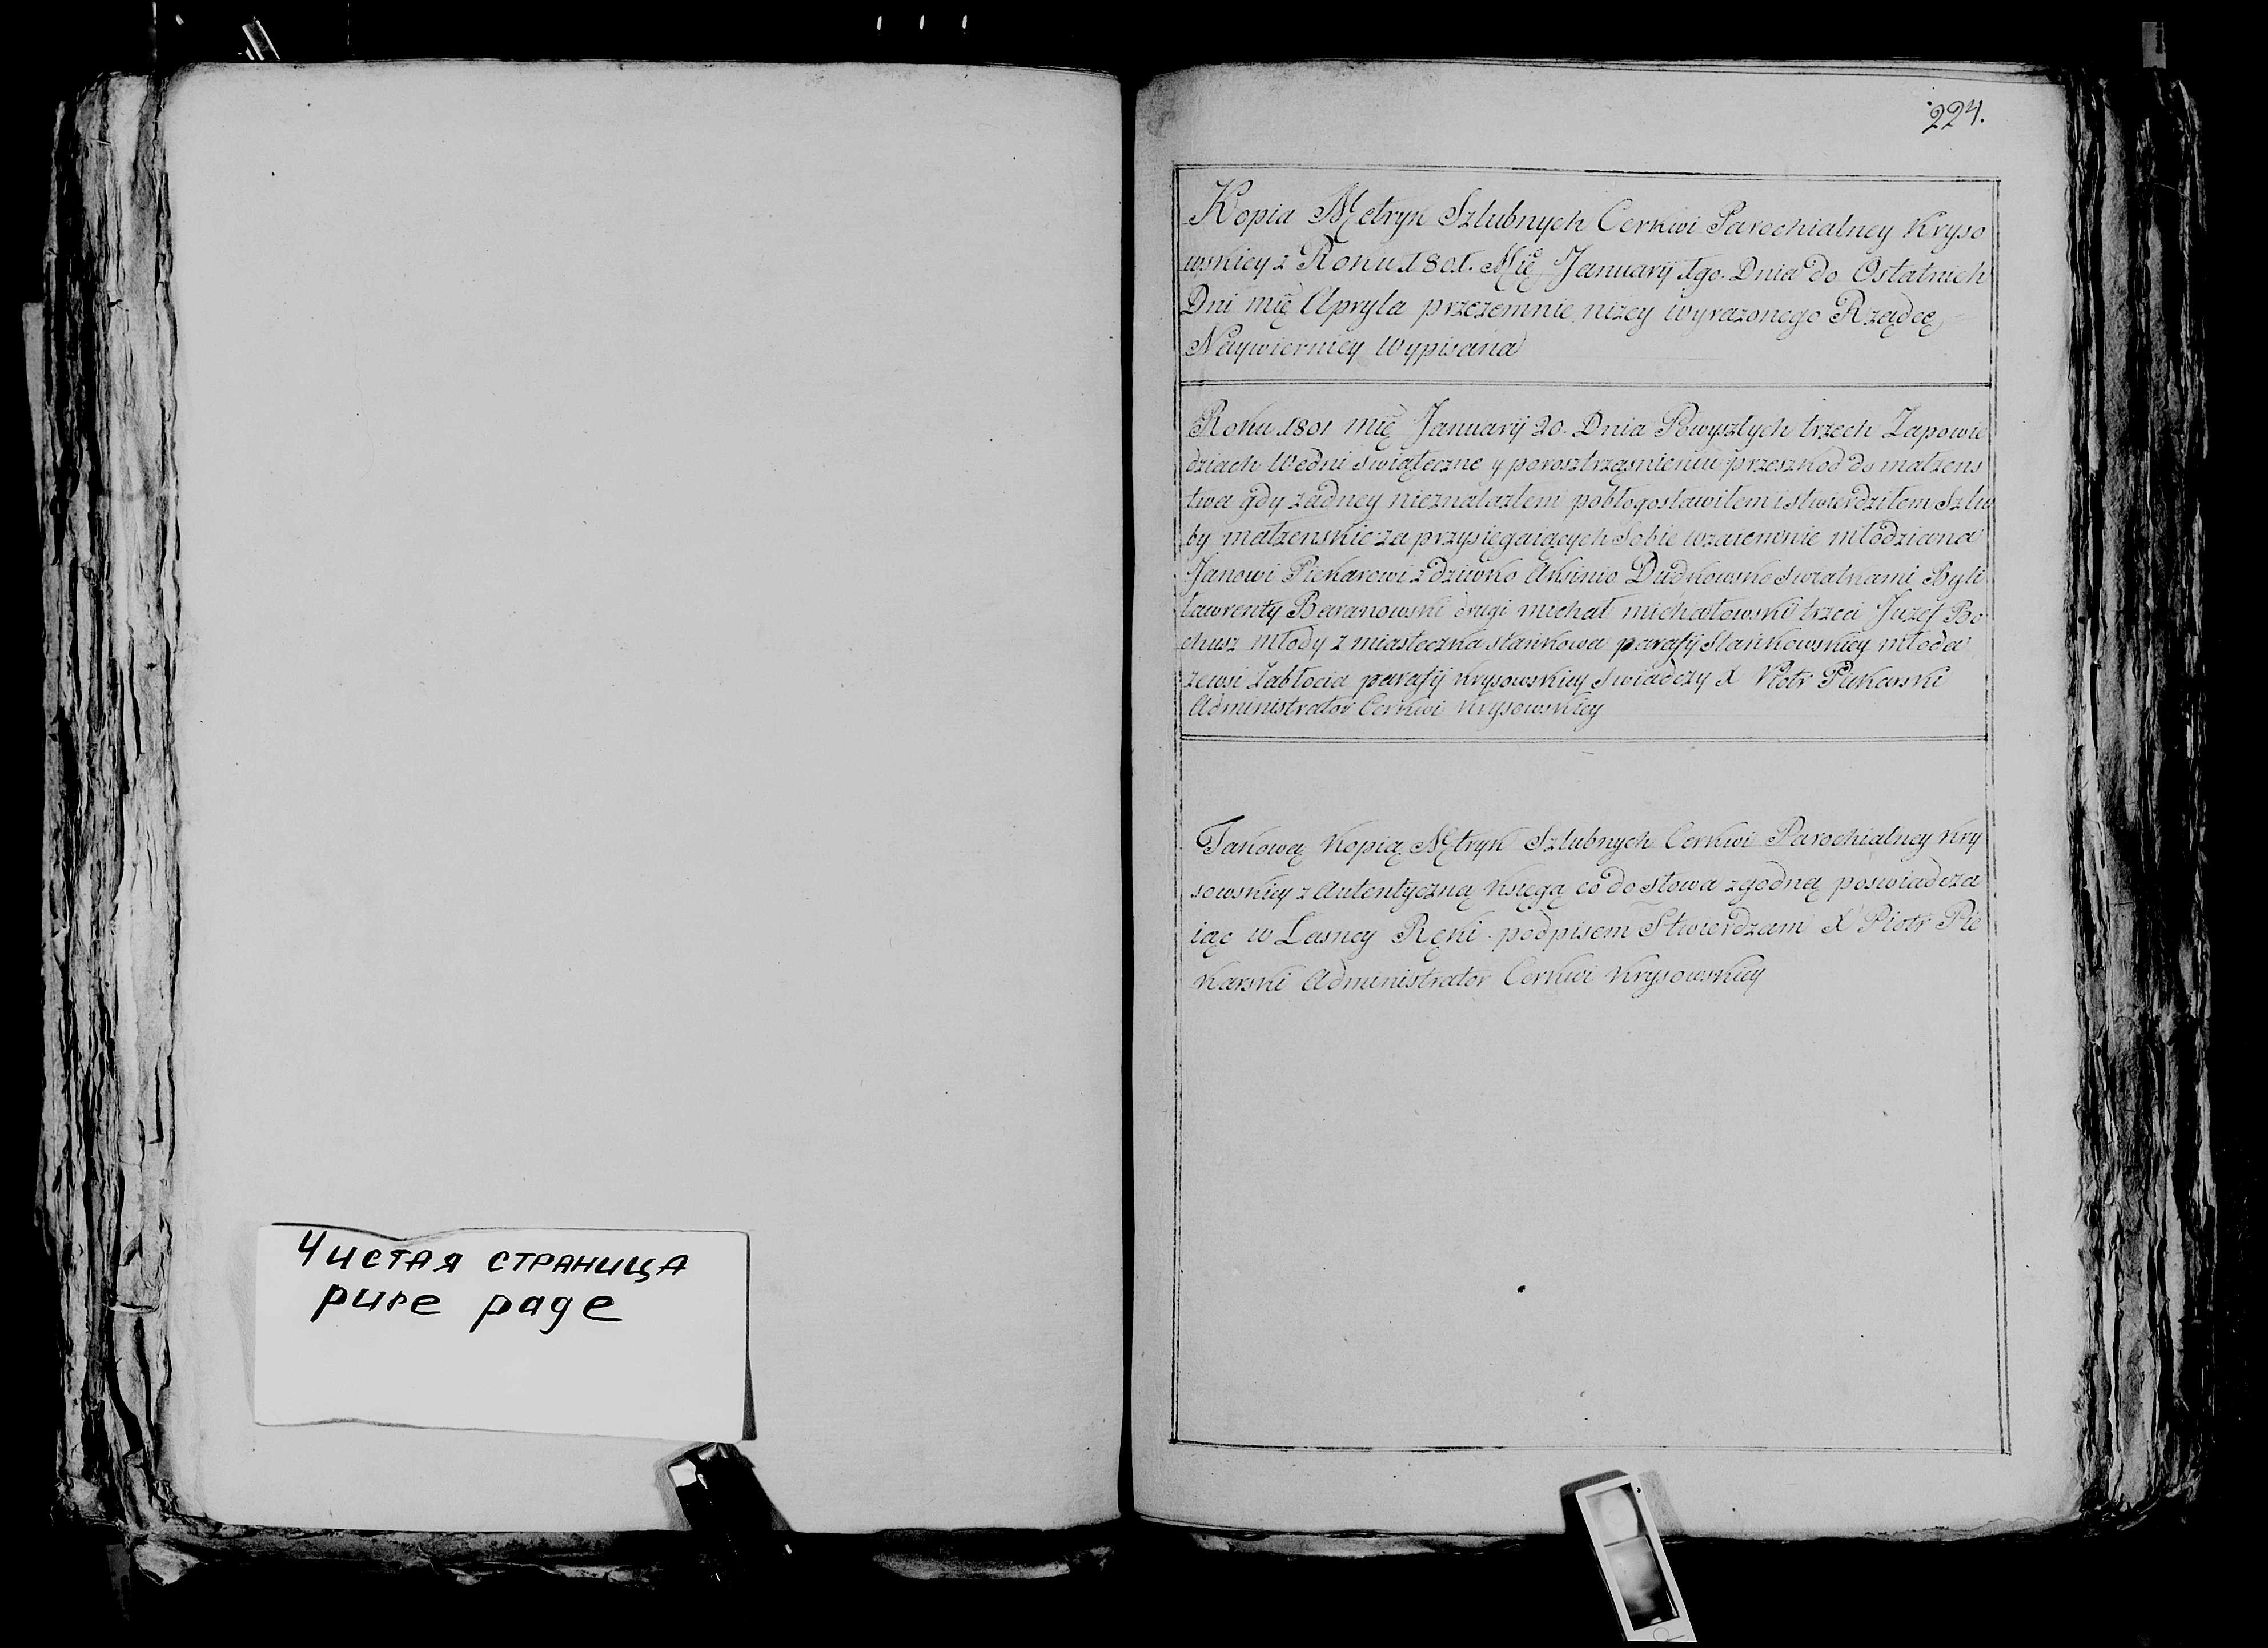 Чистая страница
pure page
224.
Kopia Metryk Szlubnych Cerkwi Parochialney Kryso
wskiey z Roku 1801. Mię Januarij 1go. Dnia do Ostatnich
Dni mię Apryla przezemnie niżey wyrazonego Rządcę
Naywierniey Wypisana
Roku 1801 mię Januarij 20. Dnia Powyszłych trzech Zapowie
dziach Wedni swiąteczne y porosztrząsnieniu przeszkod do małzens
twa gdy zadney nieznalazłem pobłogosławiłem i stwierdziłem Szlu
by małzenskie zaprzysięgaiących Sobie wzaiemnie młodziana
Janowi Piekarowi z dziwko Aksinio Dudkowsko Swiatkami Byli
Lawrenty Baranowski drugi michał michałowski trzeci Juzef Bo
chusz młody z miasteczka stańkowa parafij Stańkowskiey młoda
zewsi Zabłocia parafij krysowskiey swiadczy X Piotr Piekarski
Administrator Cerkwi Krysowskiey
Takową Kopią Metryk Szlubnych Cerkwi Parochialney Kry
sowskiey z Autentyczną Księgą co do słowa zgodną poswiadcza
iąc w Lasney Ręki podpisem Stwierdzam X Piotr Pie
karski Administrator Cerkwi Krysowskiey